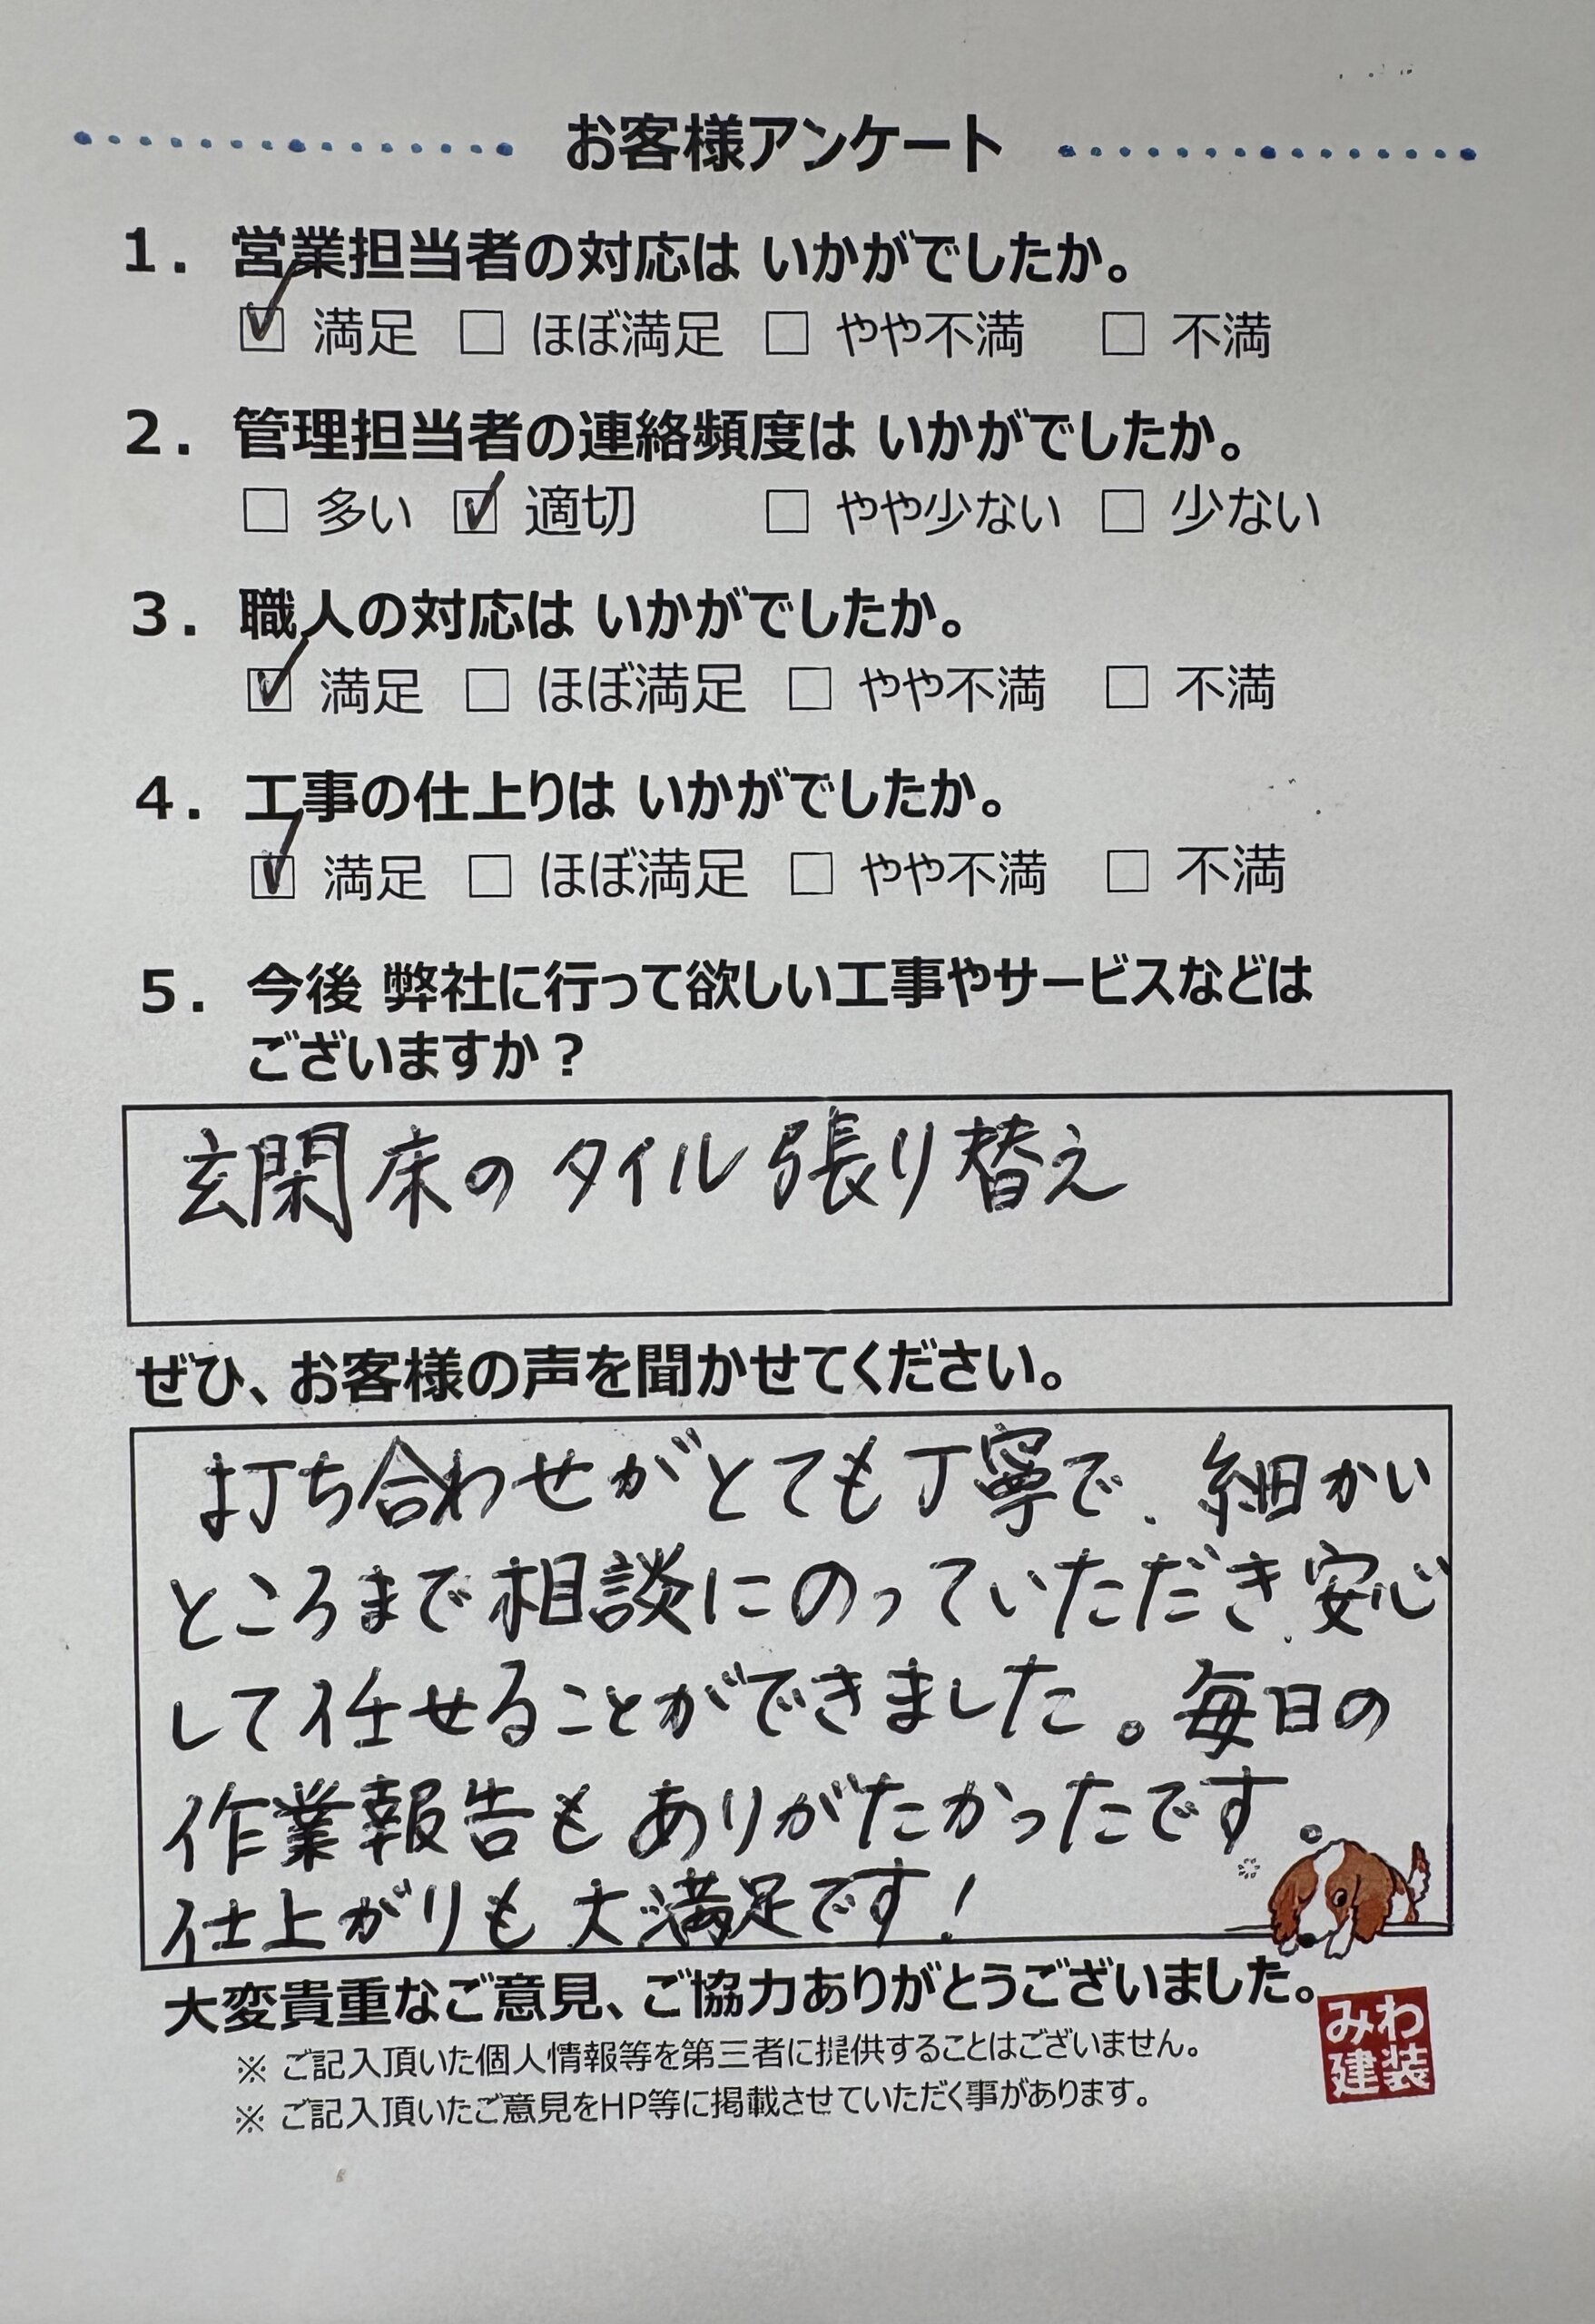 お客様アンケート
1. 営業担当者の対応は いかがでしたか。
☑ 満足 □ ほぼ満足 □ やや不満 □ 不満
2. 管理担当者の連絡頻度は いかがでしたか。
□ 多い ☑ 適切 □ やや少ない □ 少ない
3. 職人の対応は いかがでしたか。
☑ 満足 □ ほぼ満足 □ やや不満 □ 不満
4. 工事の仕上りは いかがでしたか。
☑ 満足 □ ほぼ満足 □ やや不満 □ 不満
5. 今後 弊社に行って欲しい工事やサービスなどは
ございますか？
玄関床のタイル張り替え
ぜひ、お客様の声を聞かせてください。
打ち合わせがとても丁寧で、細かい
ところまで相談にのっていただき、安心
して任せることができました。毎日の
作業報告もありがたかったです。
仕上がりも大満足です！
大変貴重なご意見、ご協力ありがとうございました。
※ ご記入頂いた個人情報等を第三者に提供することはございません。
※ ご記入頂いたご意見をHP等に掲載させていただく事があります。
みわ
建装